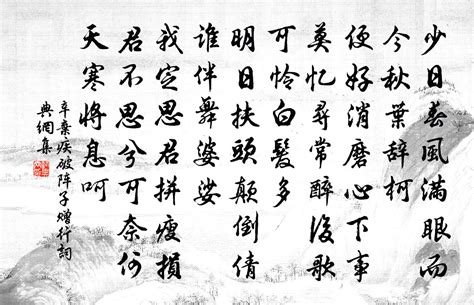 少日春風滿眼而
今秋葉辭柯
便好消磨心下事
莫忆尋常醉後歌
可怜白髮多
明日扶頭颠倒倩
谁伴舞婆娑
我定思君拼瘦損
君不思兮可奈何
天寒將息呵
辛棄疾破阵子赠行詞
典網集